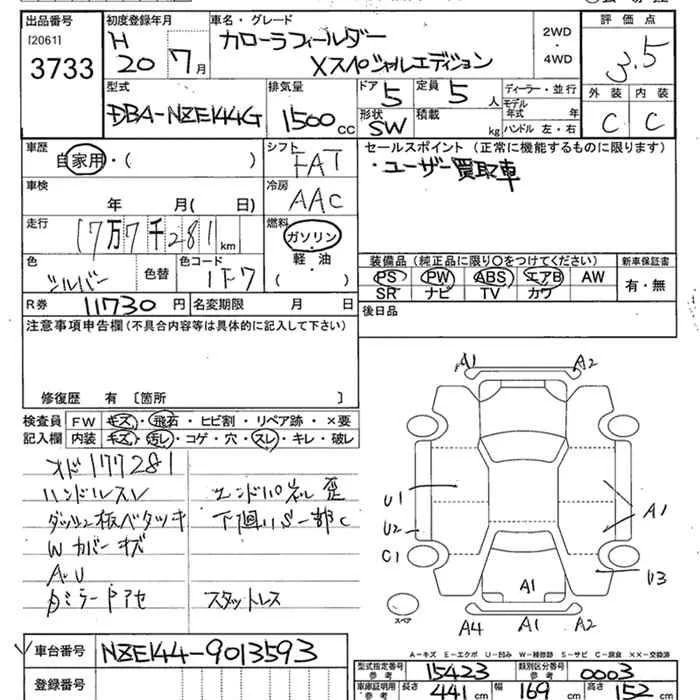 出品番号 初度登録年月 車名・グレード 評価点
[2061] H カローラフィールダー 2WD
3733 20 7月 Xスペシャルエディション ・4WD 3.5
型式 排気量 ドア 定員 ディーラー・並行 外装 内装
DBA-NZE144G 1500cc 5 5人 モデル年式 年 C C
形状 積載 kg ハンドル 左・右
SW
車歴 シフト セールスポイント(正常に機能するものに限ります)
自家用・( ) FAT ・ユーザー買取車
車検 冷房
年 月( 日) AAC
走行 燃料
17万7千281km ガソリン・
色 色替 色コード 軽・油 装備品(純正品に限り○をつけてください) 新車保証書
シルバー 1F7 ( ) PS PW ABS エアB AW 有・無
SR ナビ TV カワ
R券 11730円 名変期限 月 日 後日品
注意事項申告欄(不具合内容等は具体的に記入して下さい)
修復歴 有 〔箇所 〕
検査員 FW キズ・飛石・ヒビ割・リペア跡・×要
記入欄 内装 キズ・汚レ・コゲ・穴・スレ・キレ・破レ
オド177281
ハンドルスレ エンドパネル歪
ダッシュ板ベタツキ 下廻りS一部C
Wカバーキズ
A・U
ミラードアセ スタットレス
A1 A2
U1
U2 A1
C1
U3
A1
スペア A4 A1 A2
A-キズ E-エクボ U-凹み W-補修跡 S-サビ C-腐食 ××-交換済
車台番号 NZE144-9013593
登録番号
型式指定番号 参考 15423 類別区分番号 参考 0003
車庫証明用 参考 長さ 441cm 幅 169cm 高さ 152cm